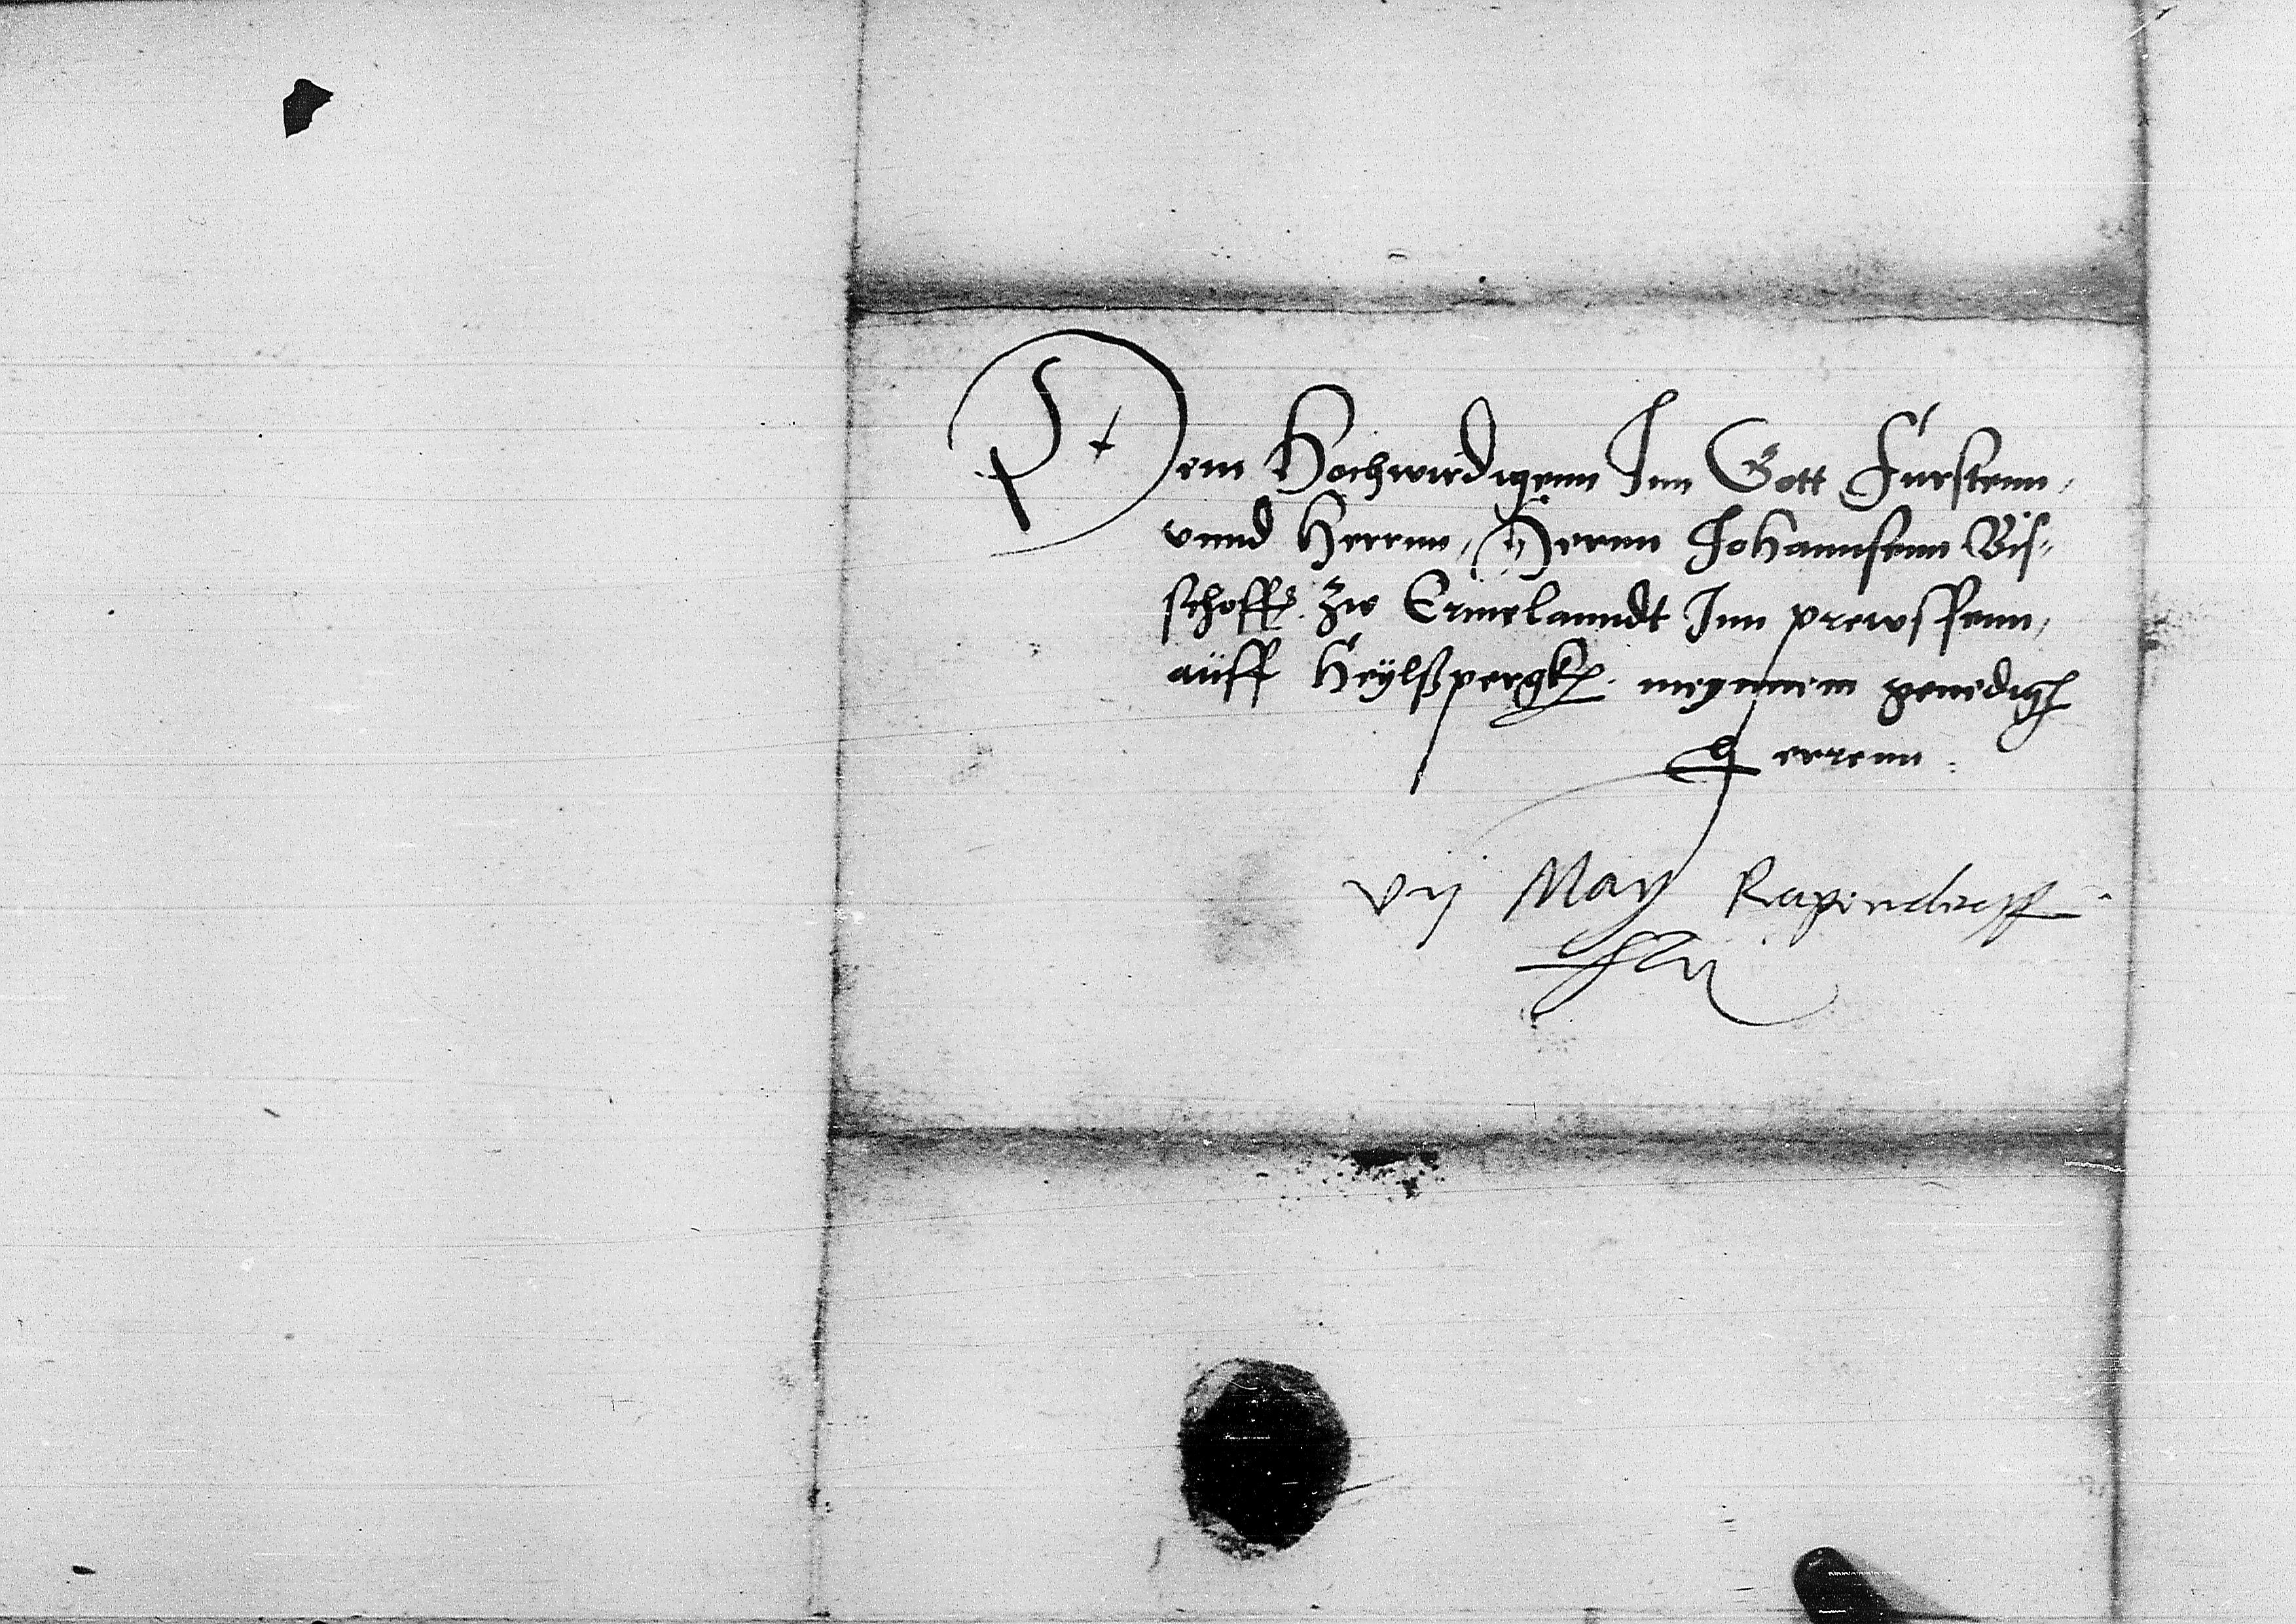 Dem Hochwirdigenn Inn Gott Furstenn,
vnnd Herrnn, Herrnn Johannsenn Bis=
schoff. zw Ermelanndt Inn prewssenn,
auff Heylßpergk. meynnem genedig
Herrenn.
vij May Rapendorff